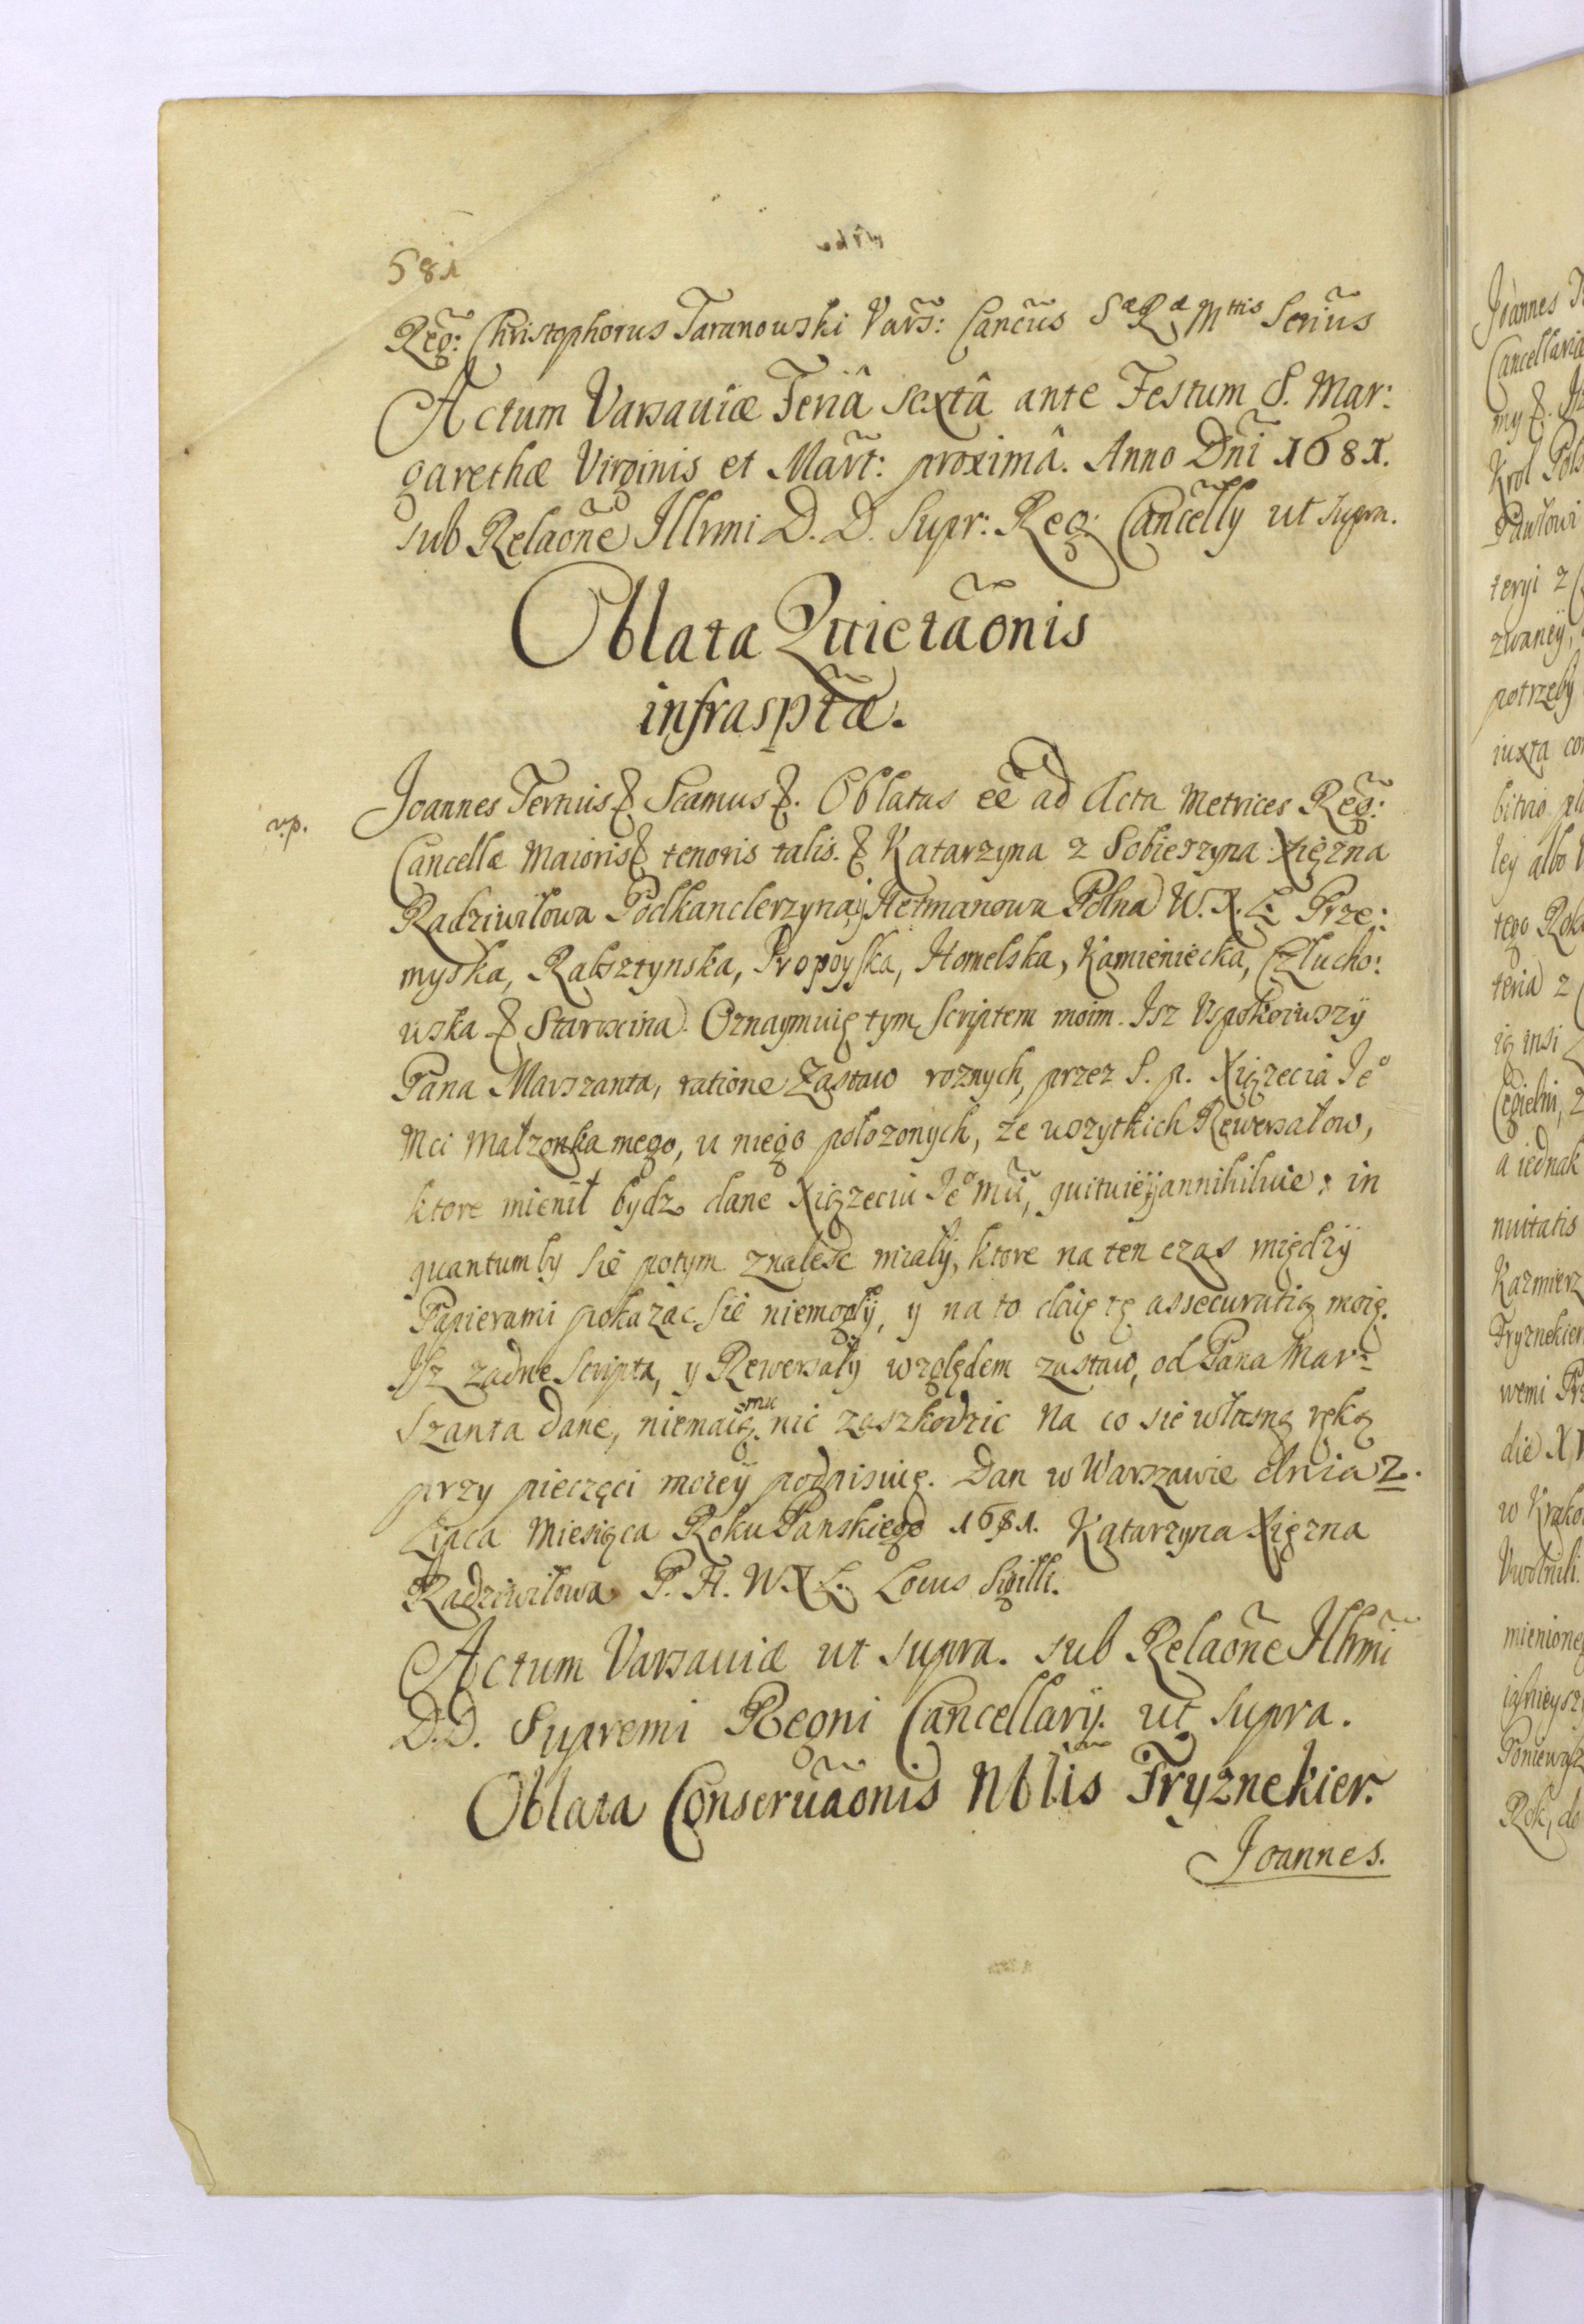 581
Reg: Christophorus Taranowski Vars: Cancũs S æ R æ M ttis Scrius
Actum Varsaviæ Feriâ sextâ ante Festum S. Mar:
garethæ Virginis et Mart: proximâ. Anno Dñi 1681.
sub Relaõne Illrmi D. D. Supr: Reg: Cancelly ut supra.
Oblata Quietaõnis
infrasptæ.
Joannes Tertius & Scamus &. Oblatus eẽ ad Acta Metrices Reg:
v.p.
Cancellæ Maioris & tenoris talis. & Katarzyna z Sobieszyna Xięzna
Radziwiłowa Podkanclerzyna, y Hetmanowa Polna W. X. L. Prze:
myska, Rabsztynska, Propoyska, Homelska, Kamieniecka, Człucho:
wska & Starościna. Oznaymuię tym Scriptem moim. Isz Uspokoiwszÿ
Pana Marszanta, ratione Zastaw roznych, przez S. p. Xiązecia Je o
Mci Małzonka mego, u niego połozonych, ze wszytkich Rewersałow,
ktore mienił bydz dane Xiązeciu Je o Mũ, quituię ÿ annihiluie: in
quantum by się potym znaleśc miałÿ, ktore na ten czas międzÿ
Papierami pokazac się niemogłÿ, y na to daię tę assecuratią moię.
Isz zadne Scripta, y Rewersałÿ względem zastaw, od Pana Mar=
szanta dane, niemaią mu nic zaszkodzic Na co się własną ręką
przy pieczęci moieÿ podpisuię. Dan w Warszawie dnia 2.
Lipca Miesiąca Roku Panskiego 1681. Katarzyna Xięzna
Radziwiłowa P. H. W X L. Locus Sigilli.
Actum Varsaviæ ut supra. sub Relaõne Illrmi
D.D. Supremi Regni Cancellarÿ. ut supra.
Oblata Conservaõnis Nblis Fryznekier.
Joannes.
Joannes
Cancellaria
Krol
Pawłowi
teryi z
zwaneÿ,
potrzebÿ
iuxta
ley albo
tego
teria z
Cegielni,
a iednak
nuitatis
Kazmierz
Fryznekier
wemi
die
w
Poniewasz
Rok, do